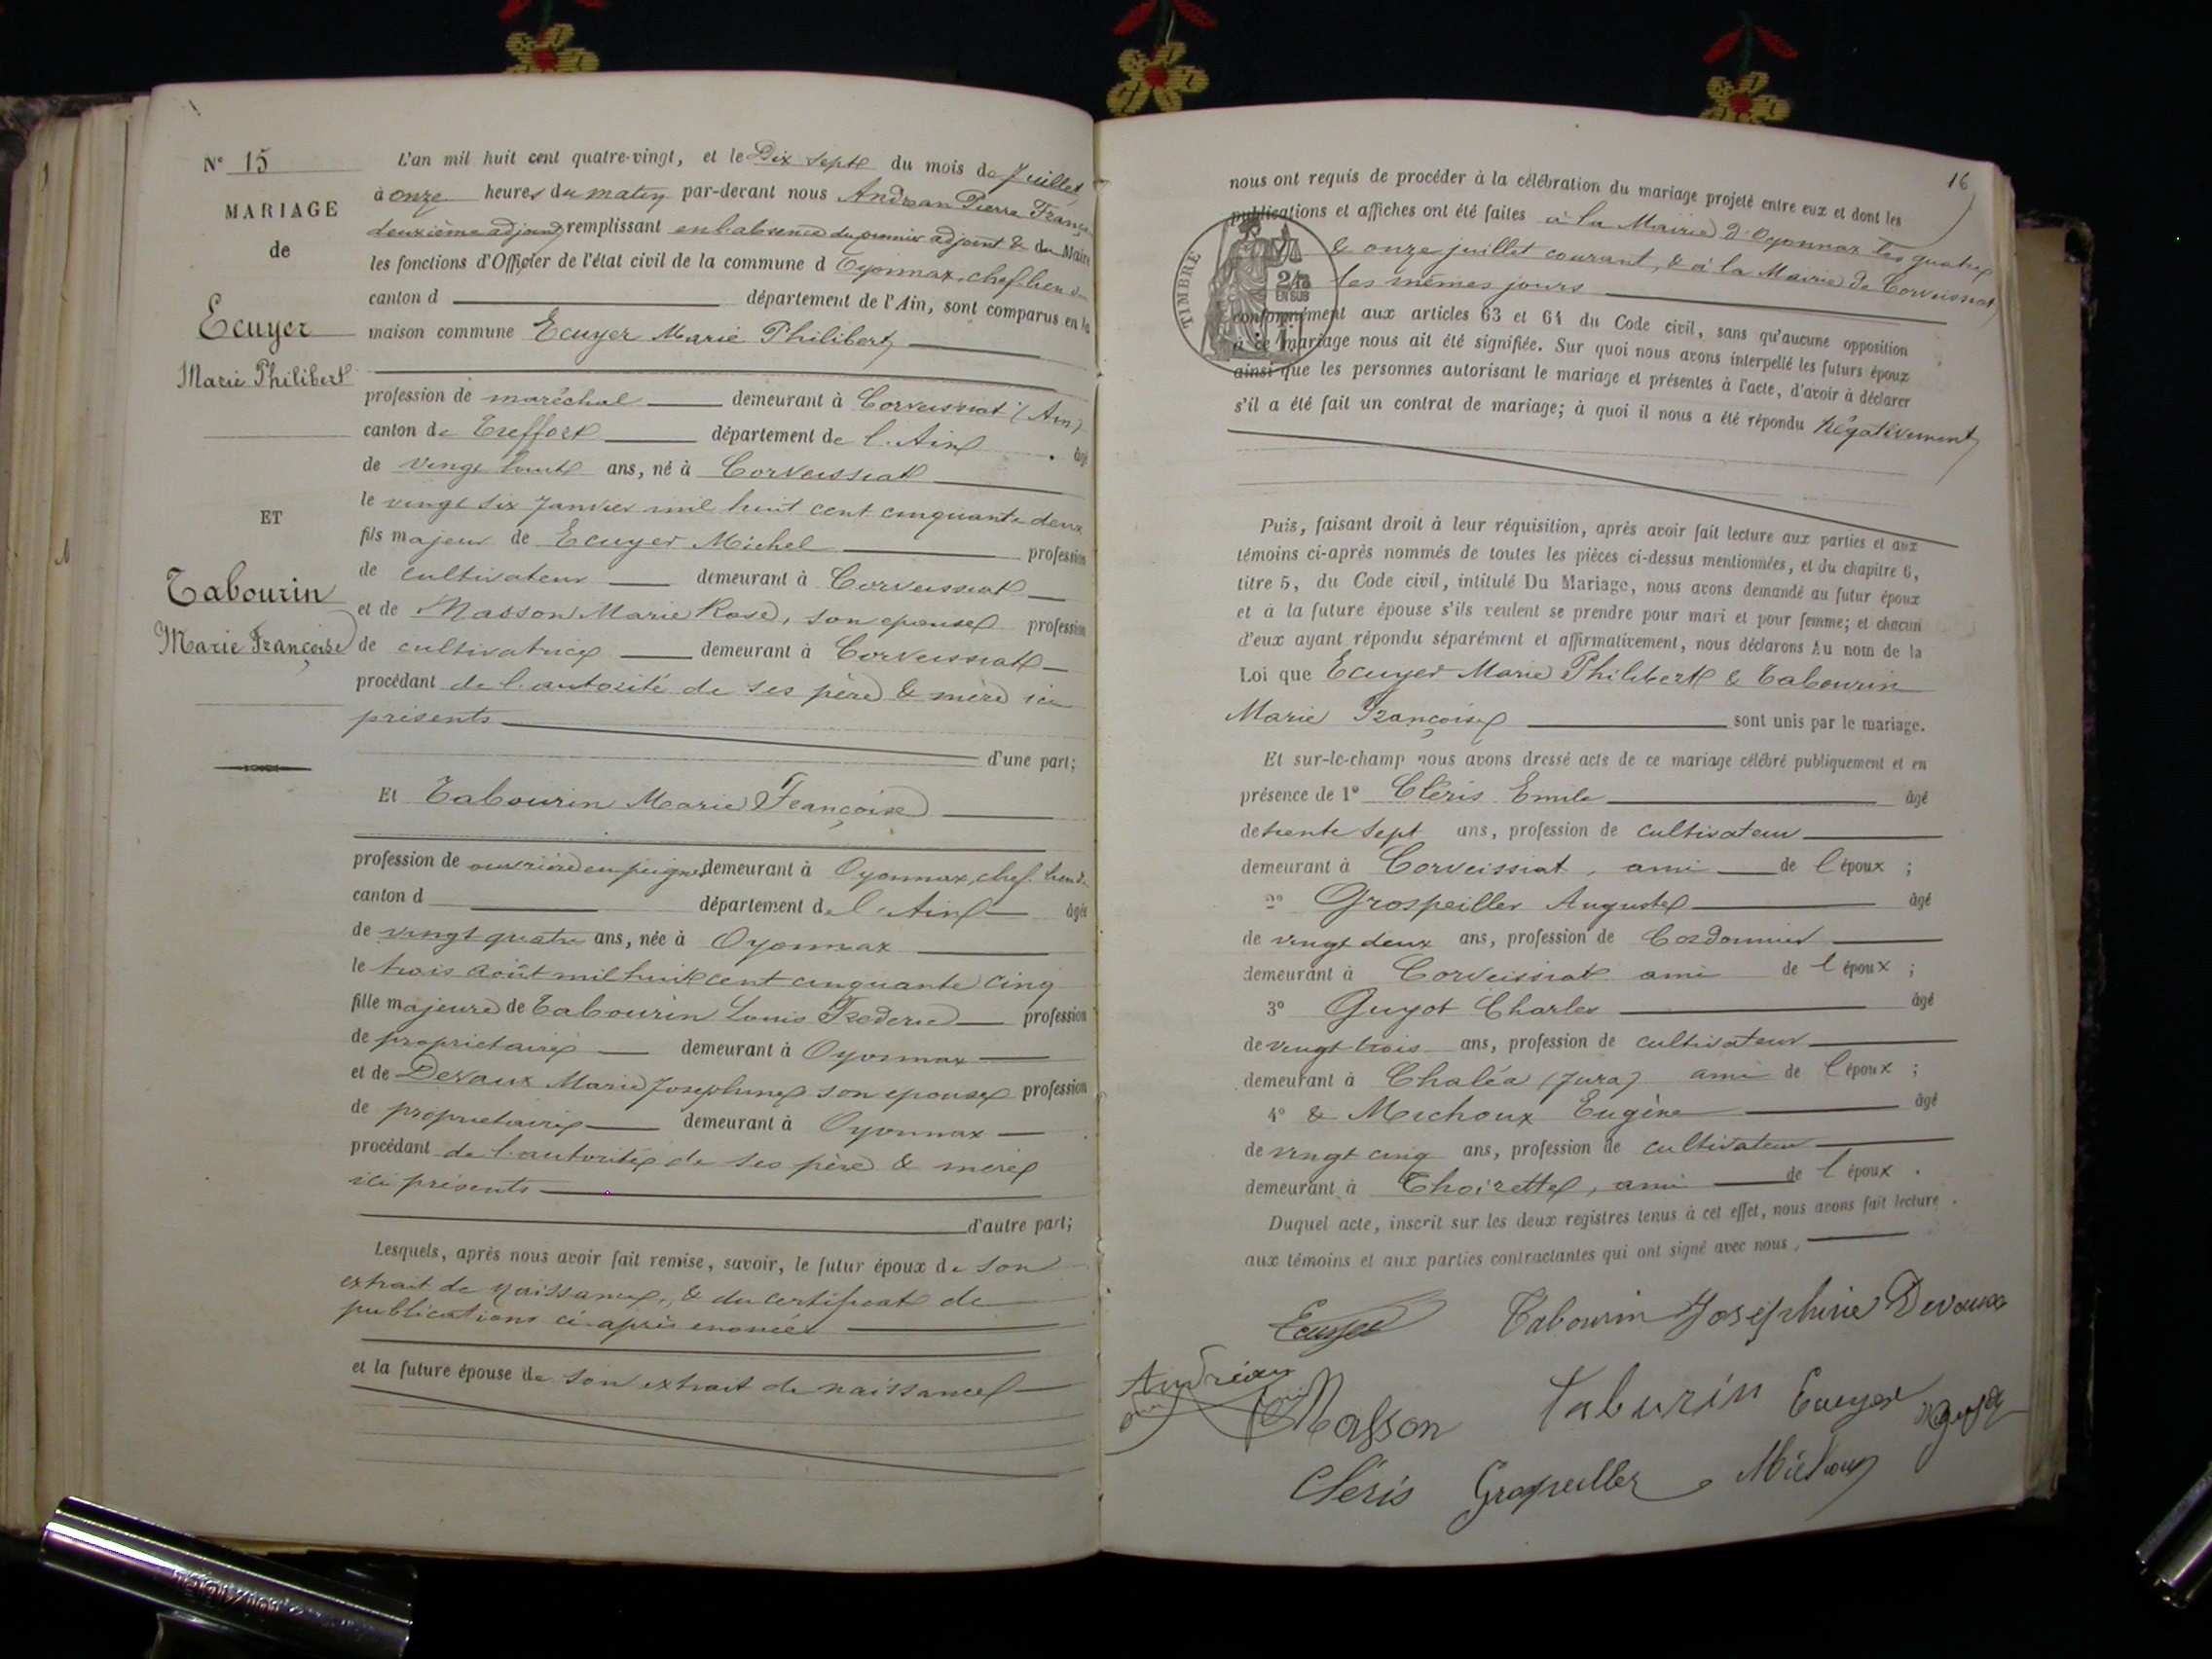 N° 15
MARIAGE
de
Ecuyer
Marie Philibert
ET
Tabourin
Marie Françoise
L'an mil huit cent quatre-vingt, et le Dix sept du mois de Juillet
à onze heures du matin par-devant nous Andréan Pierre Franço
deuxième adjoint remplissant en l'absence du premier adjoint & du Maire
les fonctions d'Officier de l'état civil de la commune d Oyonnax, chef-lieu de
canton d département de l'Ain, sont comparus en la
maison commune Ecuyer Marie Philibert
profession de maréchal demeurant à Corveissiat (Ain)
canton de Treffort département de l'Ain âgé
de vingt huit ans, né à Corveissiat
le vingt six Janvier mil huit cent cinquante deux
fils majeur de Ecuyer Michel profession
de cultivateur demeurant à Corveissiat
et de Masson Marie Rose, son epouse profession
de cultivatrice demeurant à Corveissiat
procédant de l'autorité de ses père & mère ici
présents
d'une part;
Et Tabourin Marie Françoise
profession de ouvrière en peignes demeurant à Oyonnax, chef-lieu de
canton d département de l'Ain âgée
de vingt quatre ans, née à Oyonnax
le trois août mil huit cent cinquante cinq
fille majeure de Tabourin Louis Frederic profession
de propriétaire demeurant à Oyonnax
et de Devaux Marie Josephine son epouse profession
de propriétaire demeurant à Oyonnax
procédant de l'autorité de ses père & mère
ici présents
d'autre part;
Lesquels, après nous avoir fait remise, savoir, le futur époux de son
extrait de naissance, & du certificat de
publications ci-après énoncées
et la future épouse de son extrait de naissance
16
nous ont requis de procéder à la célébration du mariage projeté entre eux et dont les
publications et affiches ont été faites à la Mairie d'Oyonnax les quatre
& onze juillet courant, & à la Mairie de Corveissiat
les mêmes jours
TIMBRE
2/10
EN SUS
conformément aux articles 63 et 64 du Code civil, sans qu'aucune opposition
à ce mariage nous ait été signifiée. Sur quoi nous avons interpellé les futurs époux
ainsi que les personnes autorisant le mariage et présentes à l'acte, d'avoir à déclarer
s'il a été fait un contrat de mariage; à quoi il nous a été répondu Négativement
Puis, faisant droit à leur réquisition, après avoir fait lecture aux parties et aux
témoins ci-après nommés de toutes les pièces ci-dessus mentionnées, et du chapitre 6,
titre 5, du Code civil, intitulé Du Mariage, nous avons demandé au futur époux
et à la future épouse s'ils veulent se prendre pour mari et pour femme; et chacun
d'eux ayant répondu séparément et affirmativement, nous déclarons Au nom de la
Loi que Ecuyer Marie Philibert & Tabourin
Marie Françoise sont unis par le mariage.
Et sur-le-champ nous avons dressé acte de ce mariage célébré publiquement et en
présence de 1° Cléris Emile âgé
de trente sept ans, profession de cultivateur
demeurant à Corveissiat, ami de l'époux ;
2° Grospeiller Auguste âgé
de vingt deux ans, profession de Cordonnier
demeurant à Corveissiat ami de l'époux ;
3° Guyot Charles âgé
de vingt trois ans, profession de cultivateur
demeurant à Chaléa (Jura) ami de l'époux ;
4° & Michoux Eugène âgé
de vingt cinq ans, profession de cultivateur
demeurant à Thoirette, ami de l'époux .
Duquel acte, inscrit sur les deux registres tenus à cet effet, nous avons fait lecture
aux témoins et aux parties contractantes qui ont signé avec nous,
Ecuyer Tabourin Joséphine Devaux
Andréan Masson Taburin Ecuyer Guyot
Cléris Grospeiller Michoux